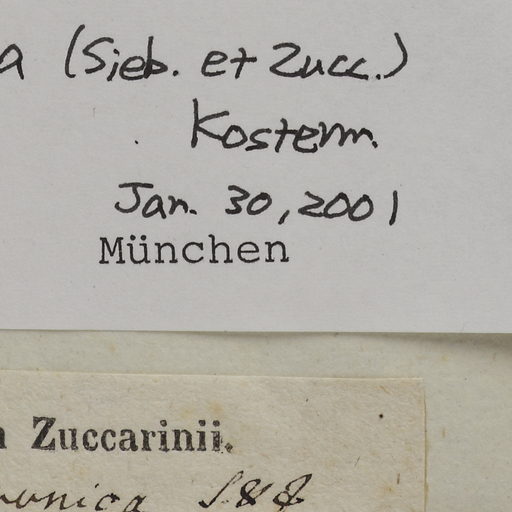 a (Sieb. et Zucc.)
Kosterm.
Jan. 30, 2001
München
Zuccarinii.